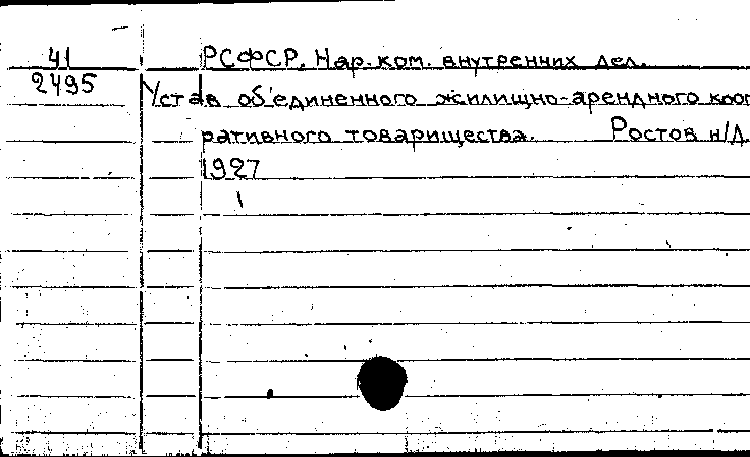 41 РСФСР. Нар. ком. внутренних дел.
2495 Устав об'единенного жилищно-арендного кооп
ративного товарищества. Ростов н/Д.
1927